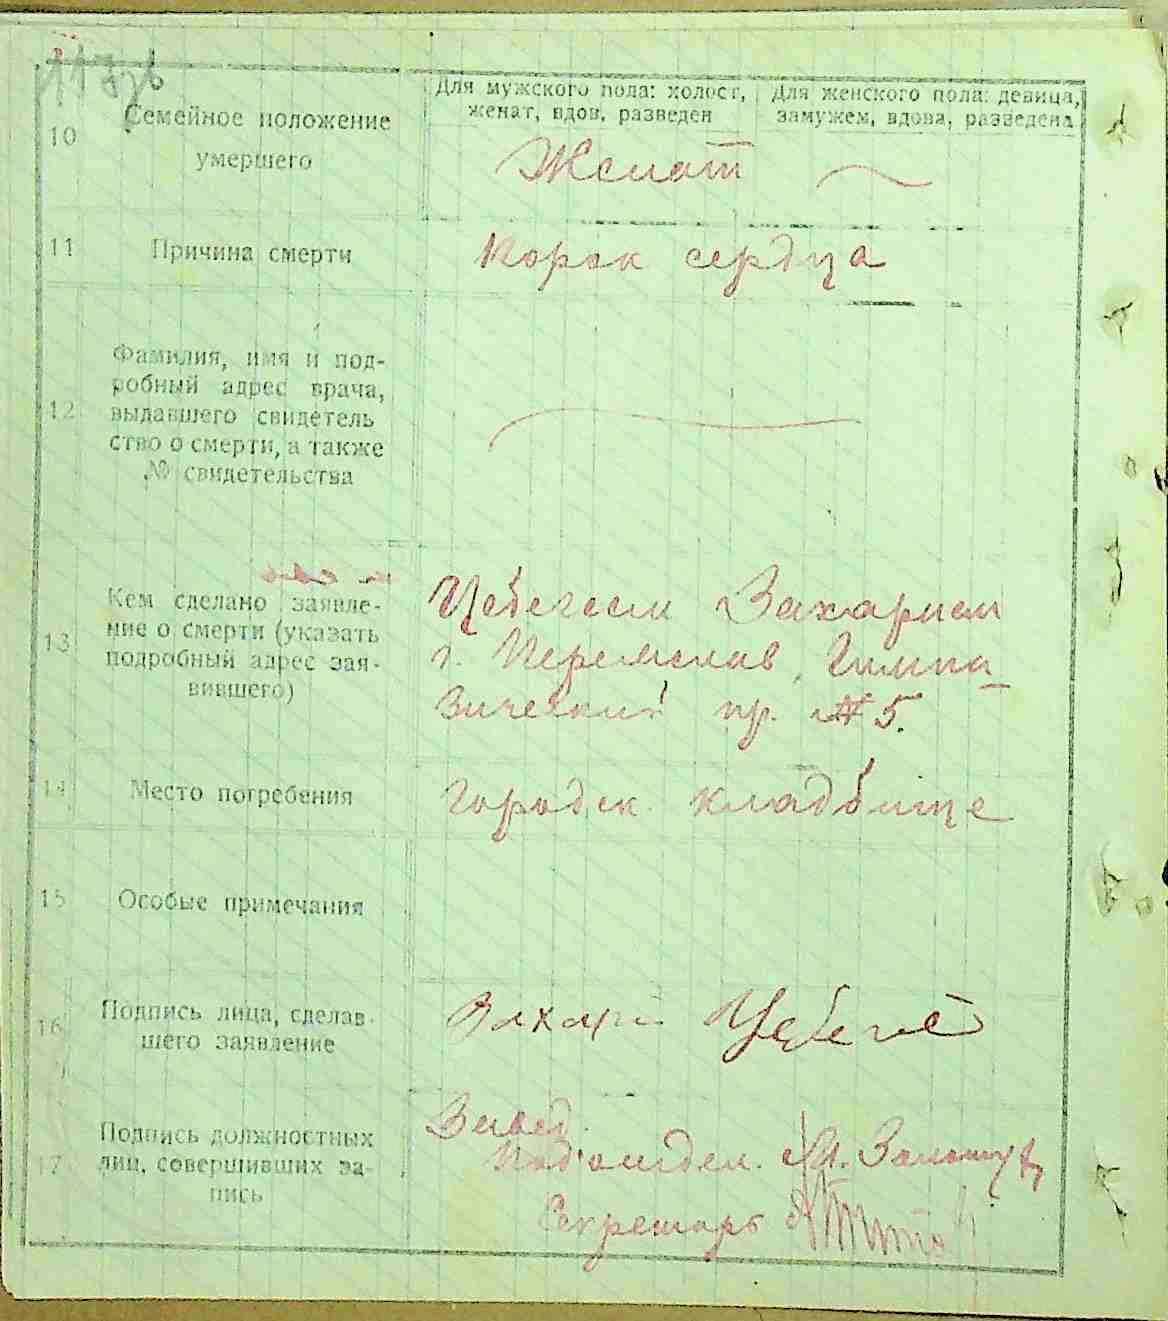 Для мужского пола: холост,
женат, вдов, разведен
Для женского пола: девица,
замужем, вдова, разведена
10 Семейное положение
умершего
Женат
11 Причина смерти
Порок сердца
12 Фамилия, имя и под-
робный адрес врача,
выдавшего свидетель
ство о смерти, а также
№ свидетельства
13 Кем сделано заявле-
ние о смерти (указать
подробный адрес зая-
вившего)
Захарием
г. Переяслав, Гимна
зический пр. № 5.
14 Место погребения
Городск. кладбище
15 Особые примечания
16 Подпись лица, сделав-
шего заявление
Захарий
17 Подпись должностных
лиц, совершивших за-
пись
Завед.
Подотдел.
Секретарь